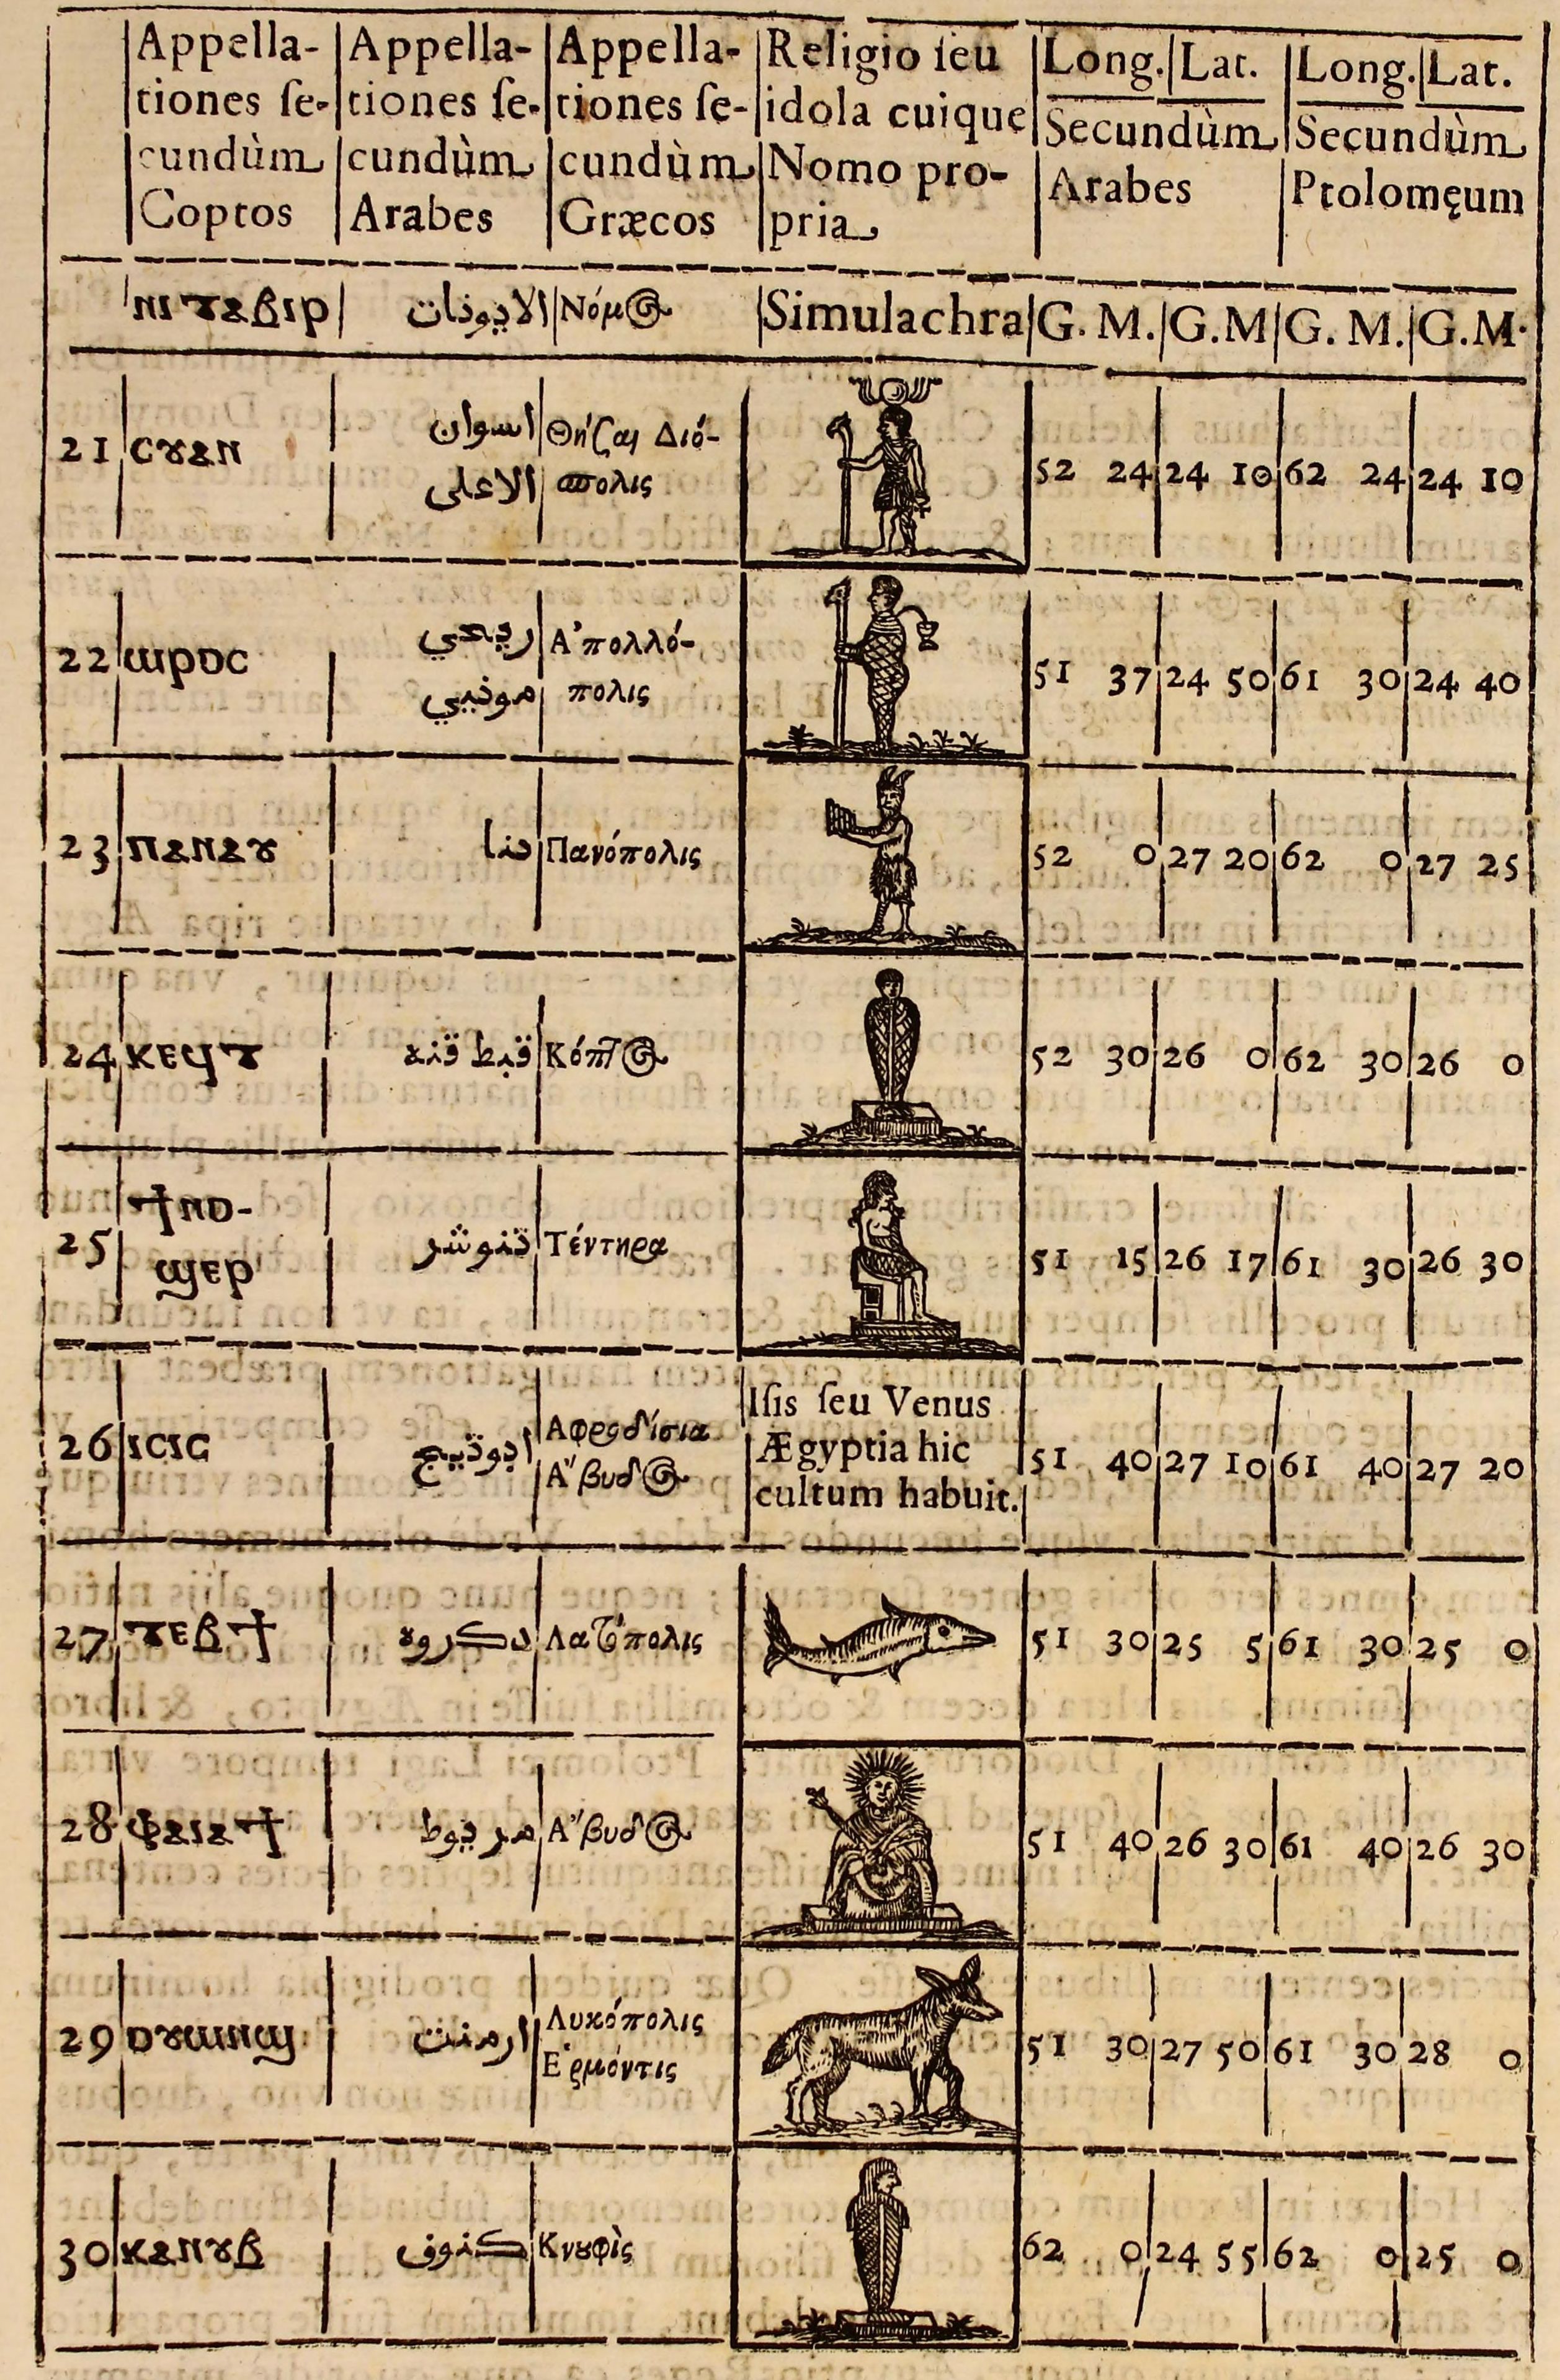 Appella- Appella- Appella- Religio ſeu Long. Lat. Long. Lat.
tiones ſe- tiones ſe- tiones ſe- idola cuique Secundùm Secundùm
cundùm cundùm cundùm Nomo pro- Arabes Ptolomęum
Coptos Arabes Græcos pria
ⲛⲓⲧⲁⲃⲓⲣ Νόμος Simulachra G. M. G. M G. M. G. M.
21 ⲥⲩⲁⲛ اسوان الاعلى Θήβαι Διό-πολις 52 24 24 10 62 24 24 10
22 ⲱⲣⲟⲥ Ἀπολλό-πολις 51 37 24 50 61 30 24 40
23 ⲡⲁⲛⲁⲩ Πανόπολις 52 0 27 20 62 0 27 25
24 ⲕⲉϥⲧ قبط قنه Κόπτος 52 30 26 0 62 30 26 0
25 ϯⲛⲟ-ϣⲉⲣ Τέντηρα 51 15 26 17 61 30 26 30
26 ⲓⲥⲓⲥ Αφροδίσια Ἄβυδος Iſis ſeu Venus Ægyptia hic cultum habuit. 51 40 27 10 61 40 27 20
27 ⲧⲉⲃϯ دكروه Λατόπολις 51 30 25 5 61 30 25 0
28 ⲫⲁⲓⲁϯ مريوط Ἄβυδος 51 40 26 30 61 40 26 30
29 ⲟⲩⲱⲛϣ ارمنت Λυκόπολις Ἑρμόντις 51 30 27 50 61 30 28 0
30 ⲕⲁⲛⲩⲃ كنوف Κνυφὶς 62 0 24 55 62 0 25 0